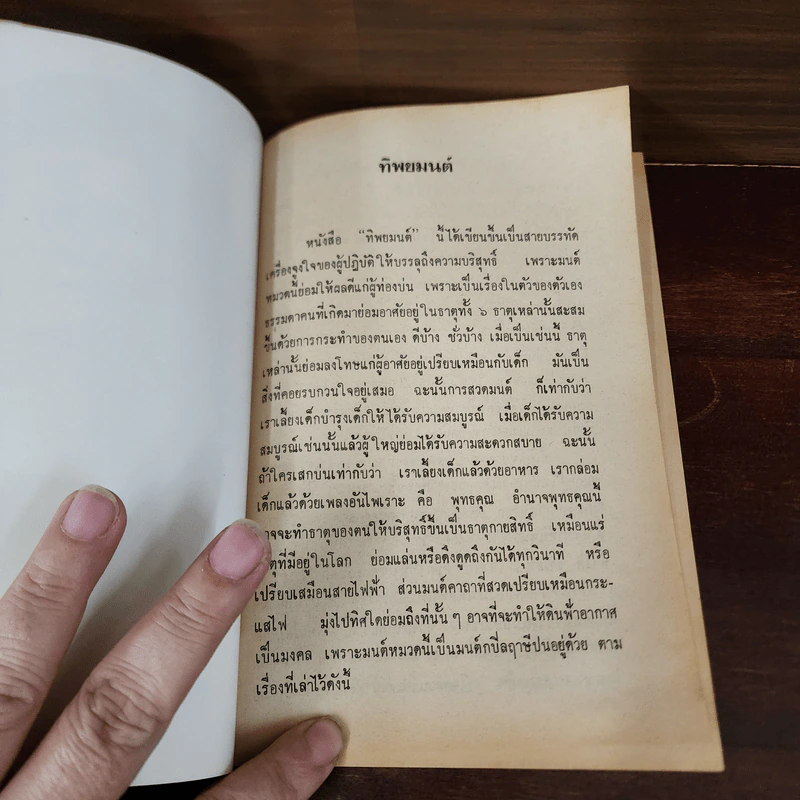 ทิพยมนต์
หนังสือ “ทิพยมนต์” นี้ได้เขียนขึ้นเป็นสายบรรทัด
เครื่องจูงใจของผู้ปฏิบัติให้บรรลุถึงความบริสุทธิ์ เพราะมนต์
หมวดนี้ย่อมให้ผลดีแก่ผู้ท่องบ่น เพราะเป็นเรื่องในตัวของตัวเอง
ธรรมดาคนที่เกิดมาย่อมอาศัยอยู่ในธาตุทั้ง ๖ ธาตุเหล่านั้นสะสม
ขึ้นด้วยการกระทำของตนเอง ดีบ้าง ชั่วบ้าง เมื่อเป็นเช่นนี้ ธาตุ
เหล่านั้นย่อมลงโทษแก่ผู้อาศัยอยู่เปรียบเหมือนกับเด็ก มันเป็น
สิ่งที่คอยรบกวนใจอยู่เสมอ ฉะนั้นการสวดมนต์ ก็เท่ากับว่า
เราเลี้ยงเด็กบำรุงเด็กให้ได้รับความสมบูรณ์ เมื่อเด็กได้รับความ
สมบูรณ์เช่นนั้นแล้วผู้ใหญ่ย่อมได้รับความสะดวกสบาย ฉะนั้น
ถ้าใครเสกบ่นเท่ากับว่า เราเลี้ยงเด็กแล้วด้วยอาหาร เรากล่อม
เด็กแล้วด้วยเพลงอันไพเราะ คือ พุทธคุณ อำนาจพุทธคุณนี้
าจจะทำธาตุของตนให้บริสุทธิ์ขึ้นเป็นธาตุกายสิทธิ์ เหมือนแร่
ธาตุที่มีอยู่ในโลก ย่อมแล่นหรือดึงดูดถึงกันได้ทุกวินาที หรือ
เปรียบเสมือนสายไฟฟ้า ส่วนมนต์คาถาที่สวดเปรียบเหมือนกระ-
แสไฟ มุ่งไปทิศใดย่อมถึงที่นั้น ๆ อาจที่จะทำให้ดินฟ้าอากาศ
เป็นมงคล เพราะมนต์หมวดนี้เป็นมนต์กบี่ลฤาษีปนอยู่ด้วย ตาม
เรื่องที่เล่าไว้ดังนี้